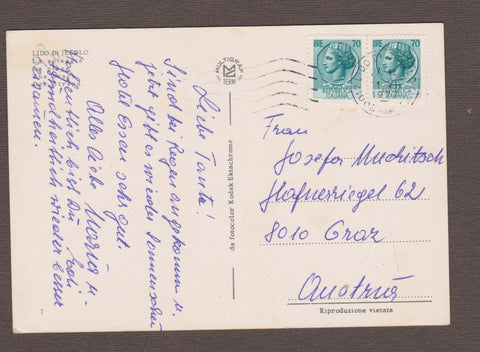 LIDO DI JESOLO
Liebe Tante!
Sind bei Regen angekomm u.
jetzt gibt es wieder Sonnenschein
Hotel Essen sehr gut.
Alles Liebe Maria u.
Edi
Hoffentlich bist Du
wieder besser
beisammen.
7
MULTIGRAF
TERNI
da fotocolor Kodak Ektachrome
70
70
Frau
Josefa Muchitsch
Hafnerriegel 62
8010 Graz
Austria
Riproduzione vietata